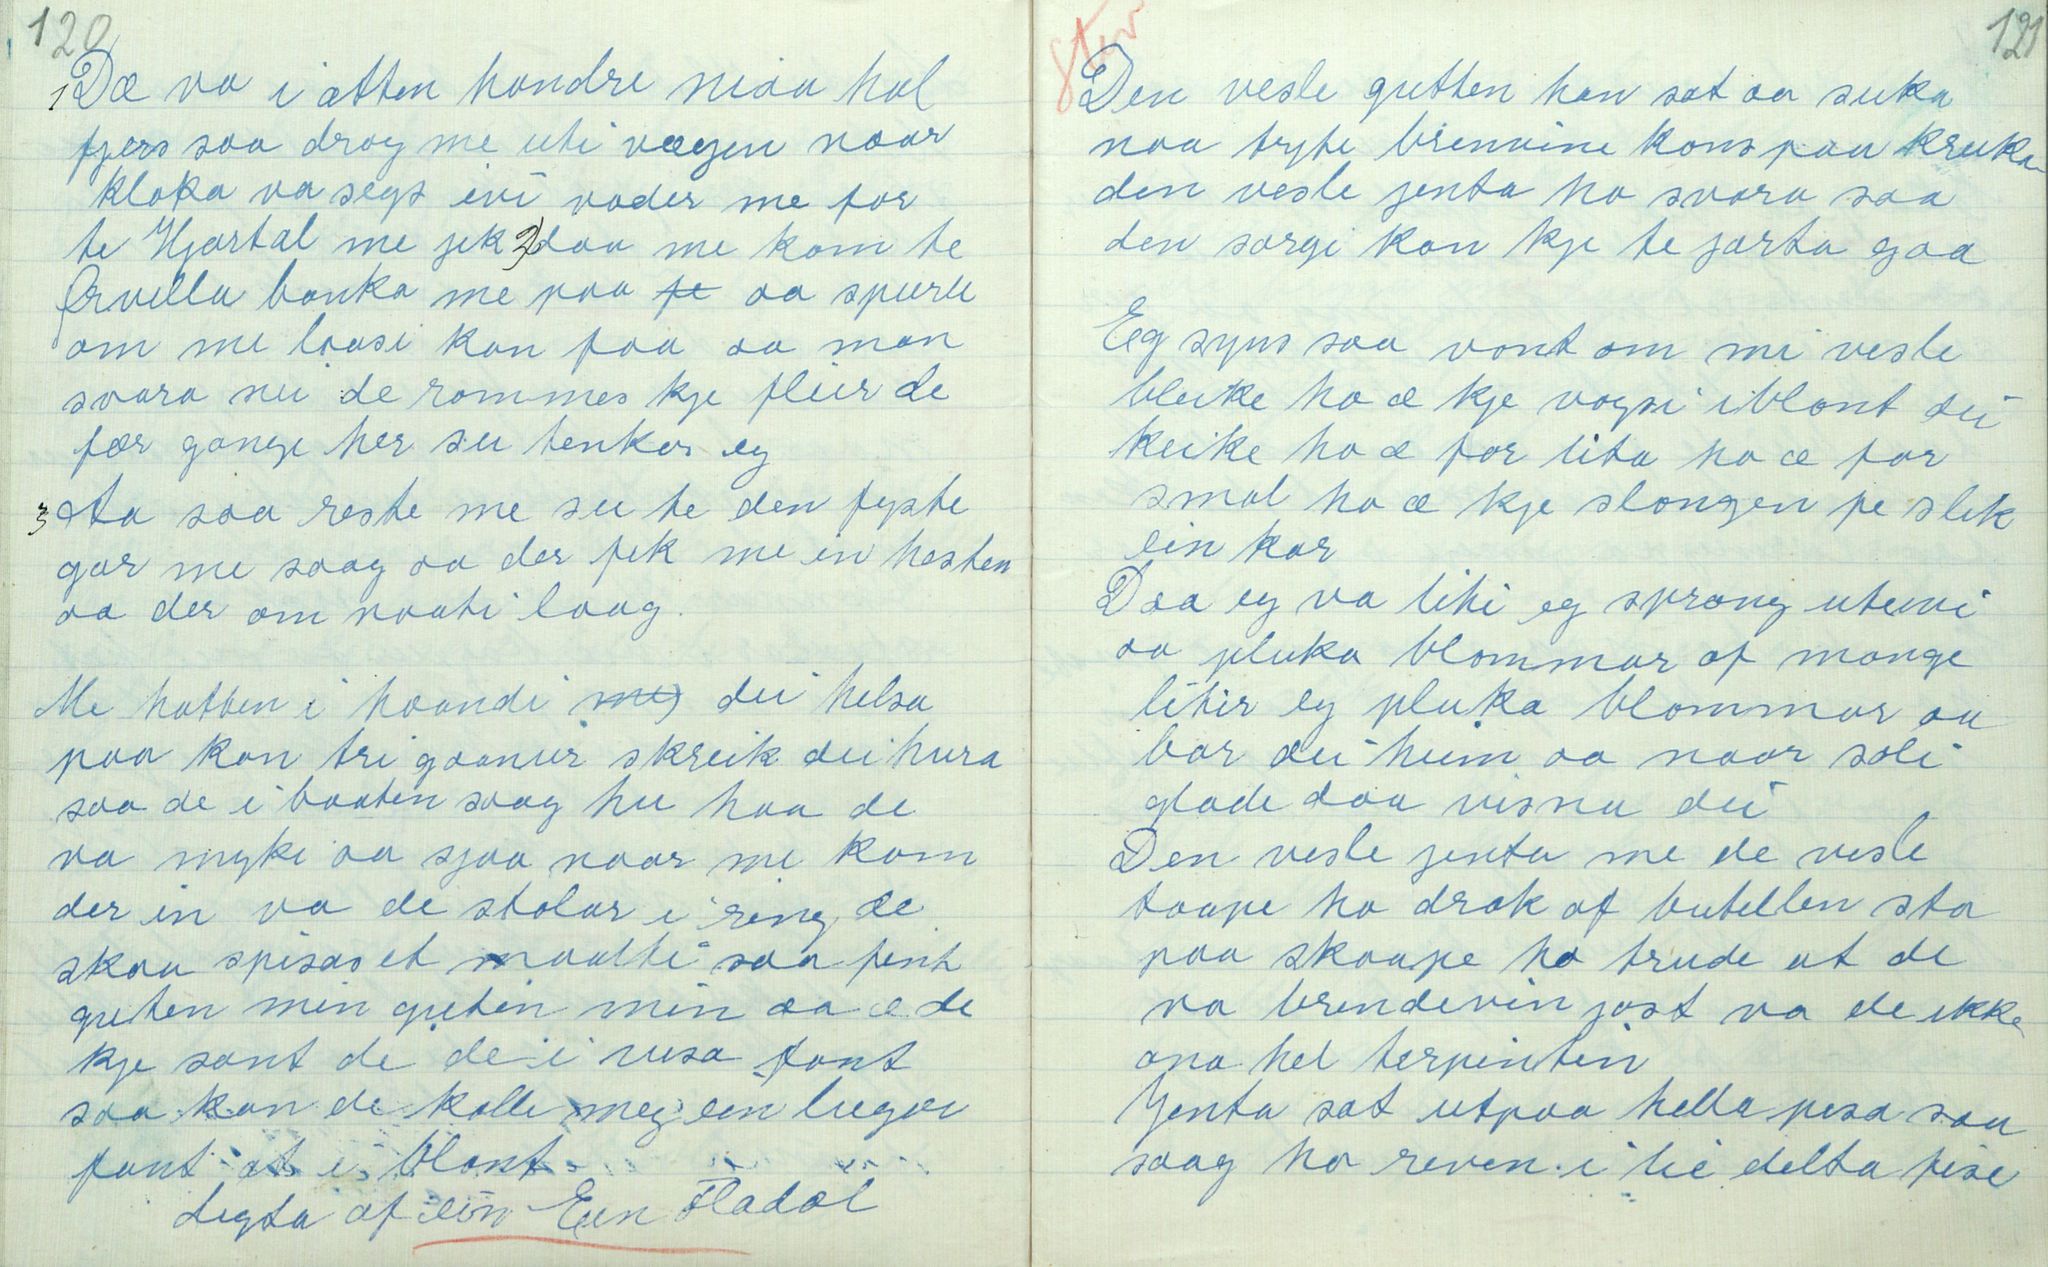 120
1 Dæ va i atten hondre niaa hal
fjers saa drog me uti vægen naar
kloka va segs ivi vader me for
te Hjartal me jek 2) daa me kom te
Ørvella banka me paa fe aa spurde
om me loasi kan faa aa man
svara nei de rommes kje fleir de
fær gange her su tenkar eg
3 Aa saa reste me su te den fyste
gar me saag aa der fek me in hesten
aa der om naati laag.
Me hatten i haandi me dei helsa
paa kan tri gaanier skreik dei hura
saa de i baaten saag hu haa de
va myke aa sjaa naar me kom
der in va de stolar i ring de
skaa spisas et maalti saa fent
guten min guten min aa æ de
kje sant de de i visa fant
saa kan de kalle meg ein liegar
fant at i blant
digta af ein Even Fladal
8 Stev
121
Den vesle gutten han sat aa suka
naa tryte brennvine kons paa kruka
den vesle jenta ho svara saa
den sorgi kan kje te jarta gaa
Eg syns saa vont om mi vesle
bleike ho æ kje vogsi iblant dei
keike ho æ for lita ho æ for
smal ho æ kje slongen fe slik
ein kar
Daa eg va liti eg sprang utuvi
aa pluka blommar af mange
litir eg pluka blommar aa
bar dei heim aa naar soli
glade daa visna dei
Den vesle jenta me de vesle
taape ho drak af butellen sta
paa skaape ho trude at de
va brendevin jast va de ikke
ana hel terpintin
Jenta sat utpaa hella pesa saa
saag ho reven i lie delta fise